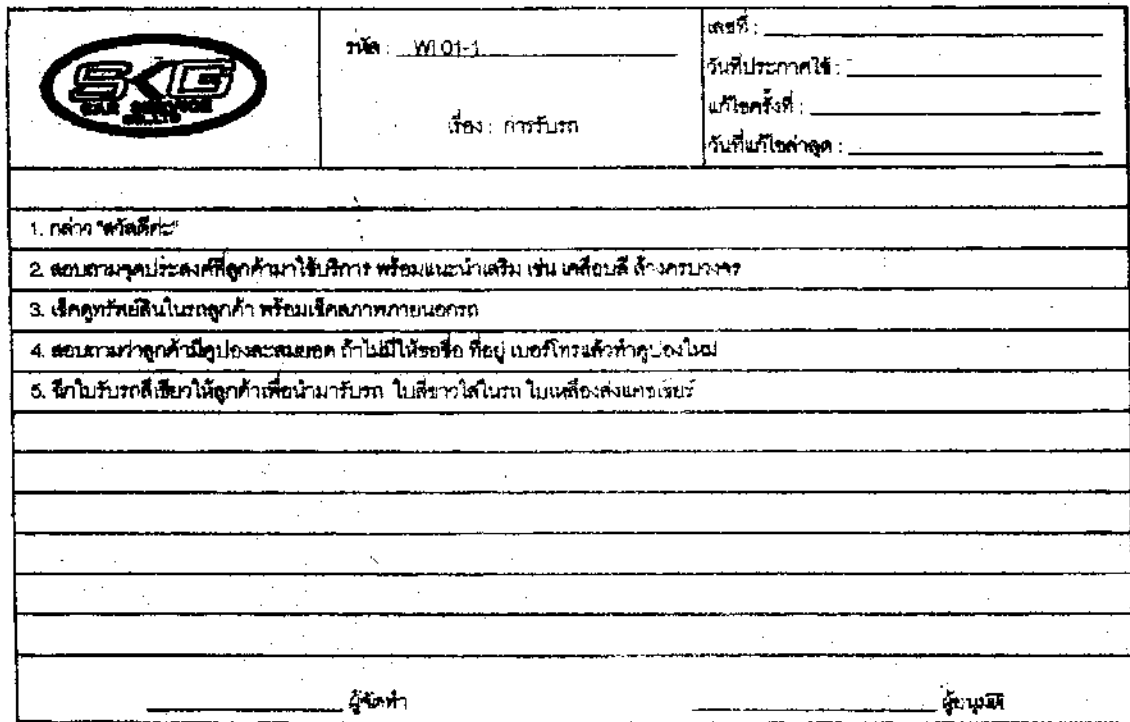 SKG
CAR SERVICE
CO.,LTD
รหัส : WI 01-1
เรื่อง : การรับรถ
เลขที่ :
วันที่ประกาศใช้ :
แก้ไขครั้งที่ :
วันที่แก้ไขล่าสุด :
1. กล่าว "สวัสดีค่ะ"
2. สอบถามจุดประสงค์ที่ลูกค้ามาใช้บริการ พร้อมแนะนำเสริม เช่น เคลือบสี ล้างครบวงจร
3. เช็คดูทรัพย์สินในรถลูกค้า พร้อมเช็คสภาพภายนอกรถ
4. สอบถามว่าลูกค้ามีคูปองสะสมยอด ถ้าไม่มีให้ขอชื่อ ที่อยู่ เบอร์โทรแล้วทำคูปองใหม่
5. ฉีกใบรับรถสีเขียวให้ลูกค้าเพื่อนำมารับรถ ใบสีขาวใส่ในรถ ใบเหลืองส่งแคชเชียร์
ผู้จัดทำ
ผู้อนุมัติ